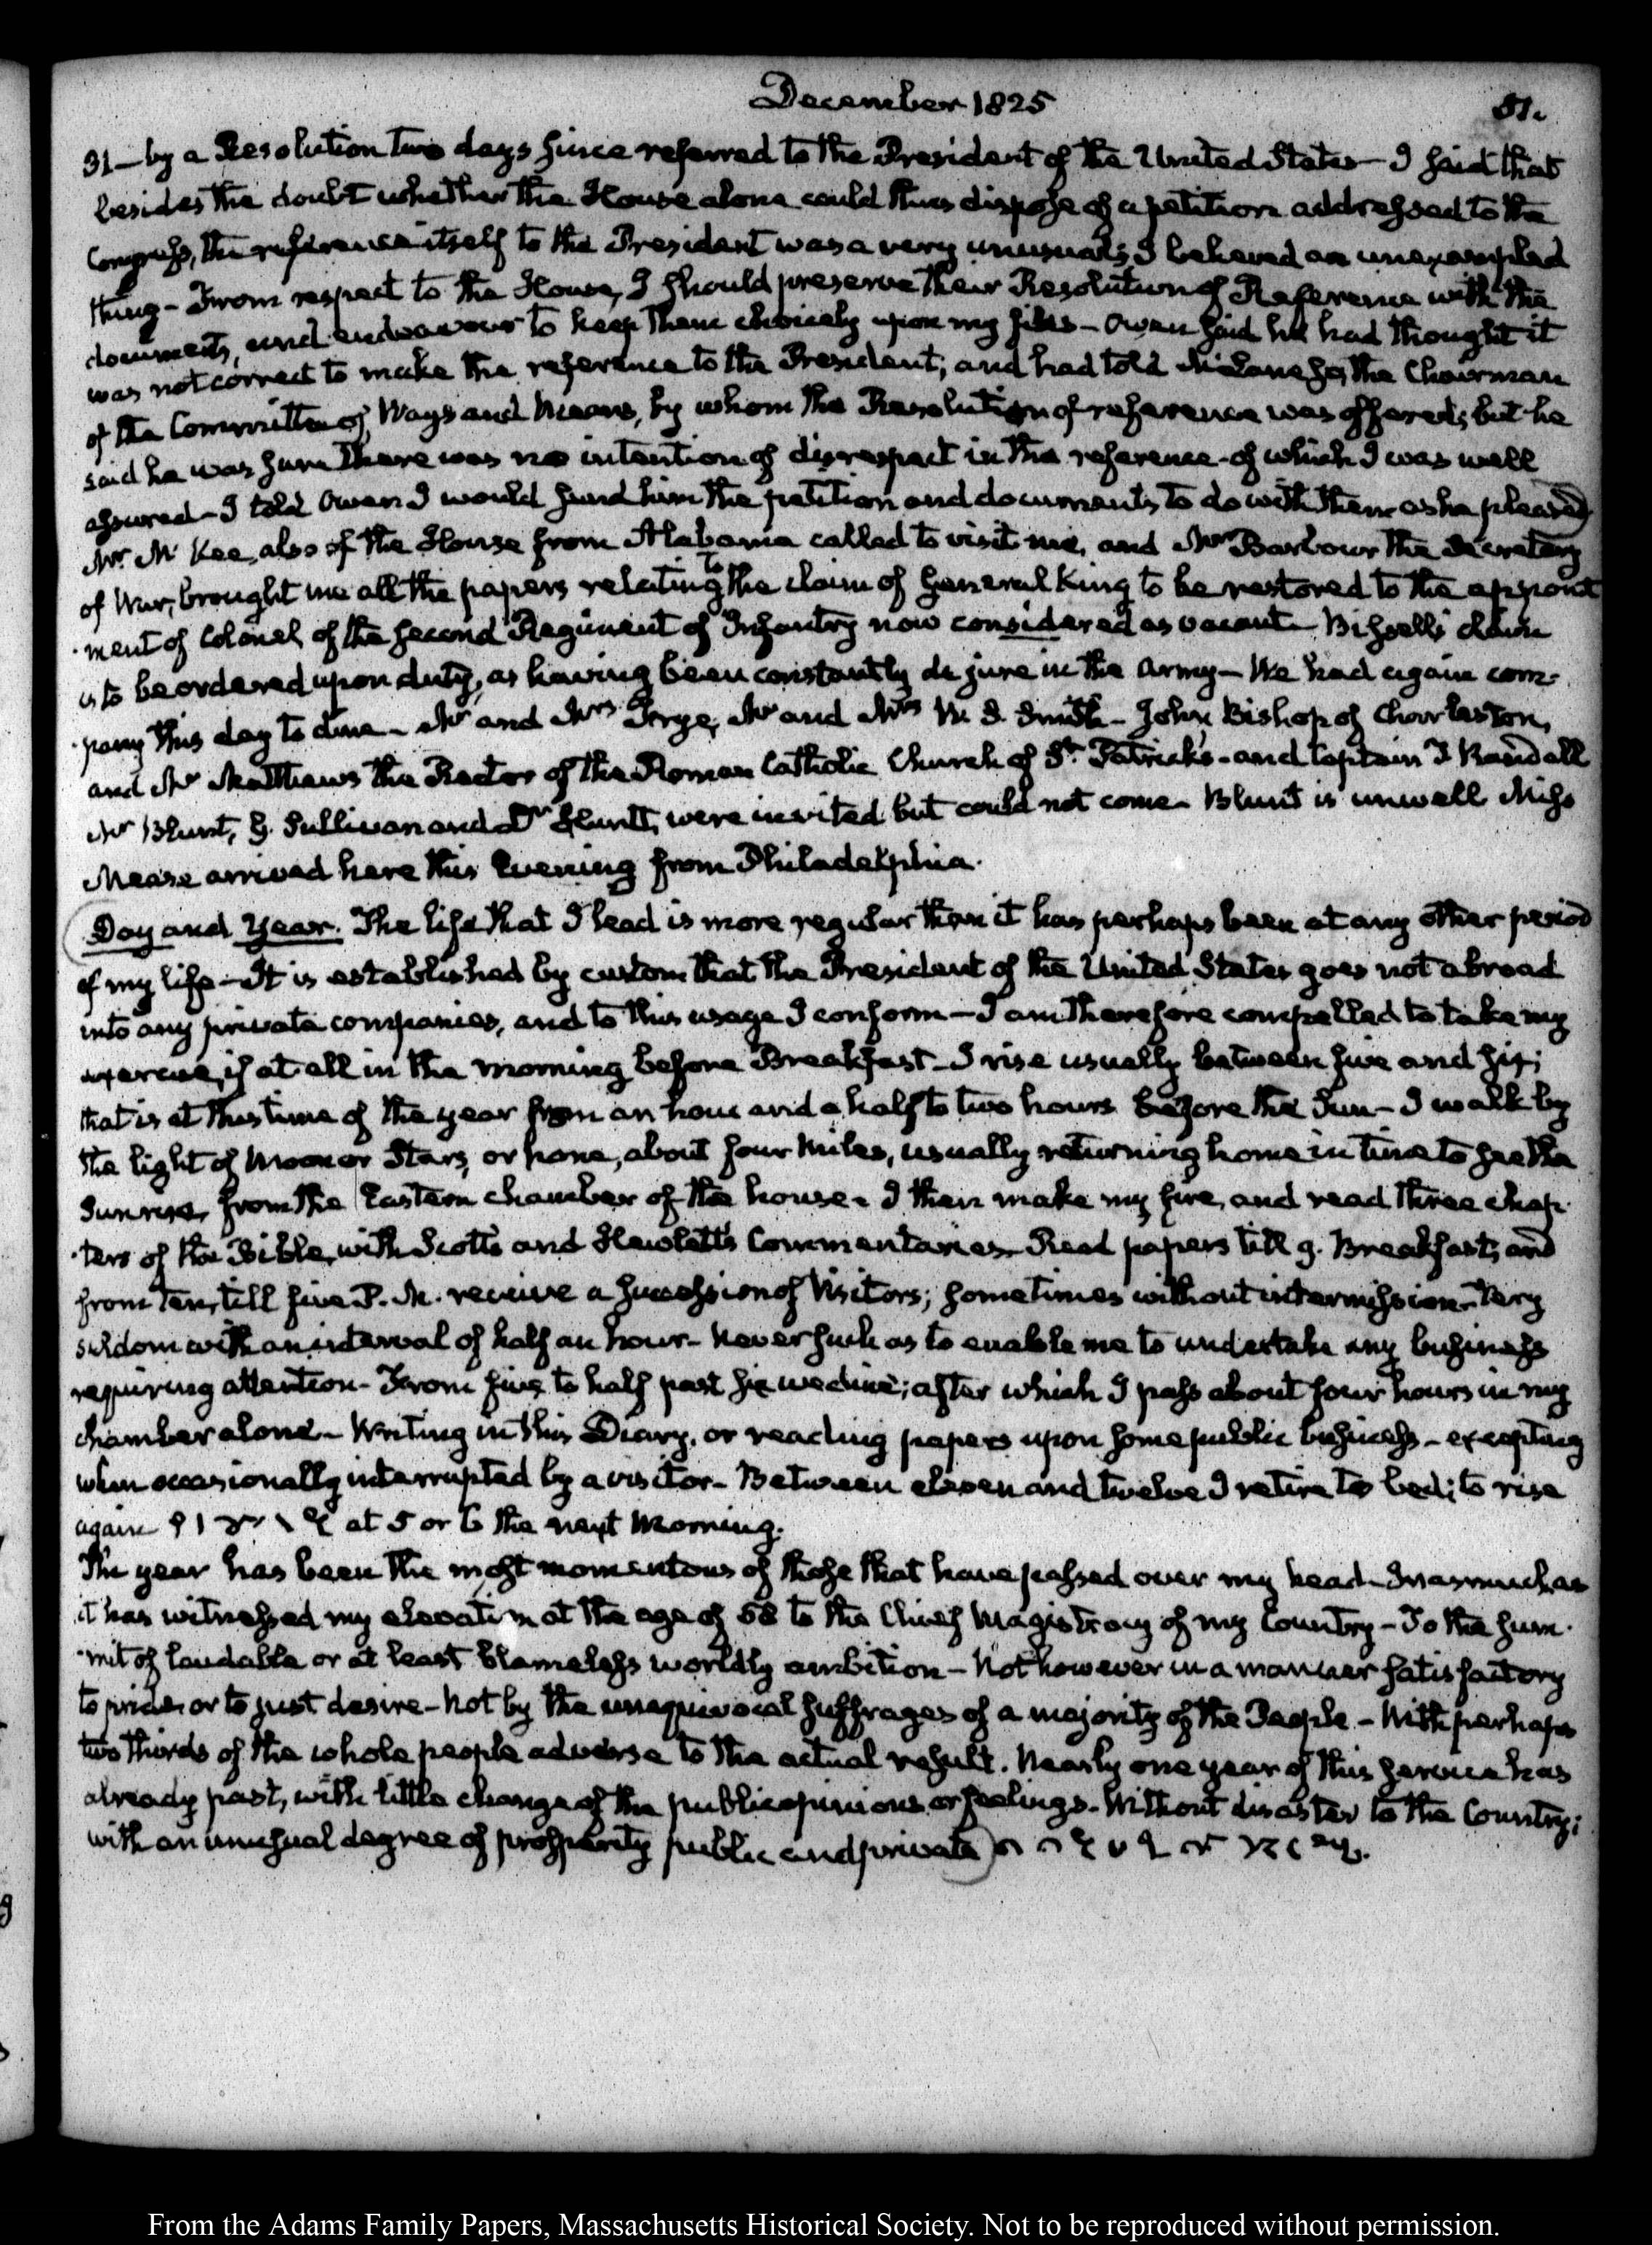 December 1825
51.
31— by a Resolution two days since referred to the President of the United States— I said that
besides the doubt whether the House alone could thus dispose of a petition addressed to the
Congress, the reference itself to the President was a very unusual; I believed an unexampled
thing— From respect to the House, I should preserve their Resolution of Reference with the
documents, and endeavour to keep them choicely upon my files— Owen said he had thought it
was not correct to make the reference to the President; and had told McLane so, the Chairman
of the Committee of Ways and Means, by whom the Resolution of reference was offered; but he
said he was sure there was no intention of disrespect in the reference— of which I was well
assured— I told Owen I would send him the petition and documents, to do with them as he pleased
Mr. McKee, also of the House from Alabama called to visit me, and Mr Barbour the Secretary
of War, brought me all the papers relating to the claim of General King to be restored to the appoint
ment of Colonel of the second Regiment of Infantry now considered as vacant— Bissell's claim
is to be ordered upon duty, as having been constantly de jure in the Army— We had again com-
pany this day to dine— Mr and Mrs Frye, Mr and Mrs W. S. Smith— John, Bishop of Charleston,
and Mr Matthews the Rector of the Roman Catholic Church of St. Patrick's— and Captain T. Randall
Mr Blunt, G. Sullivan and Dr Huntt, were invited but could not come— Blunt is unwell Miss
Mease arrived here this Evening from Philadelphia.
Day and Year. The life that I lead is more regular than it has perhaps been at any other period
of my life— It is established by custom that the President of the United States goes not abroad
into any private companies, and to this usage I conform— I am therefore compelled to take my
exercise, if at all in the morning before Breakfast— I rise usually between five and six;
that is at this time of the year from an hour and a half to two hours before the Sun— I walk by
the light of Moon or Stars, or none, about four Miles, usually returning home in time to see the
Sun rise, from the Eastern chamber of the house— I then make my fire, and read three chap-
ters of the Bible, with Scott's and Hewlett's Commentaries— Read papers till 9. Breakfast, and
from Ten, till five P. M. receive a succession of Visitors; sometimes without intermission— Very
seldom with an interval of half an hour— Never such as to enable me to undertake any business
requiring attention— From five to half past six we dine; after which I pass about four hours in my
chamber alone— Writing in this Diary, or reading papers upon some public business— excepting
when occasionally interrupted by a visitor— Between eleven and twelve I retire to bed; to rise
again at 5 or 6 the next Morning.
The year has been the most momentous of those that have passed over my head— Inasmuch as
it has witnessed my elevation at the age of 58 to the Chief Magistracy of my Country— To the sum-
mit of laudable or at least blameless worldly ambition— Not however in a manner satisfactory
to pride, or to just desire— Not by the unequivocal suffrages of a majority of the People— With perhaps
two thirds of the whole people adverse to the actual result. Nearly one year of this service has
already past, with little change of the public opinions or feelings— Without disaster to the Country;
with an unusual degree of prosperity public and private
From the Adams Family Papers, Massachusetts Historical Society. Not to be reproduced without permission.